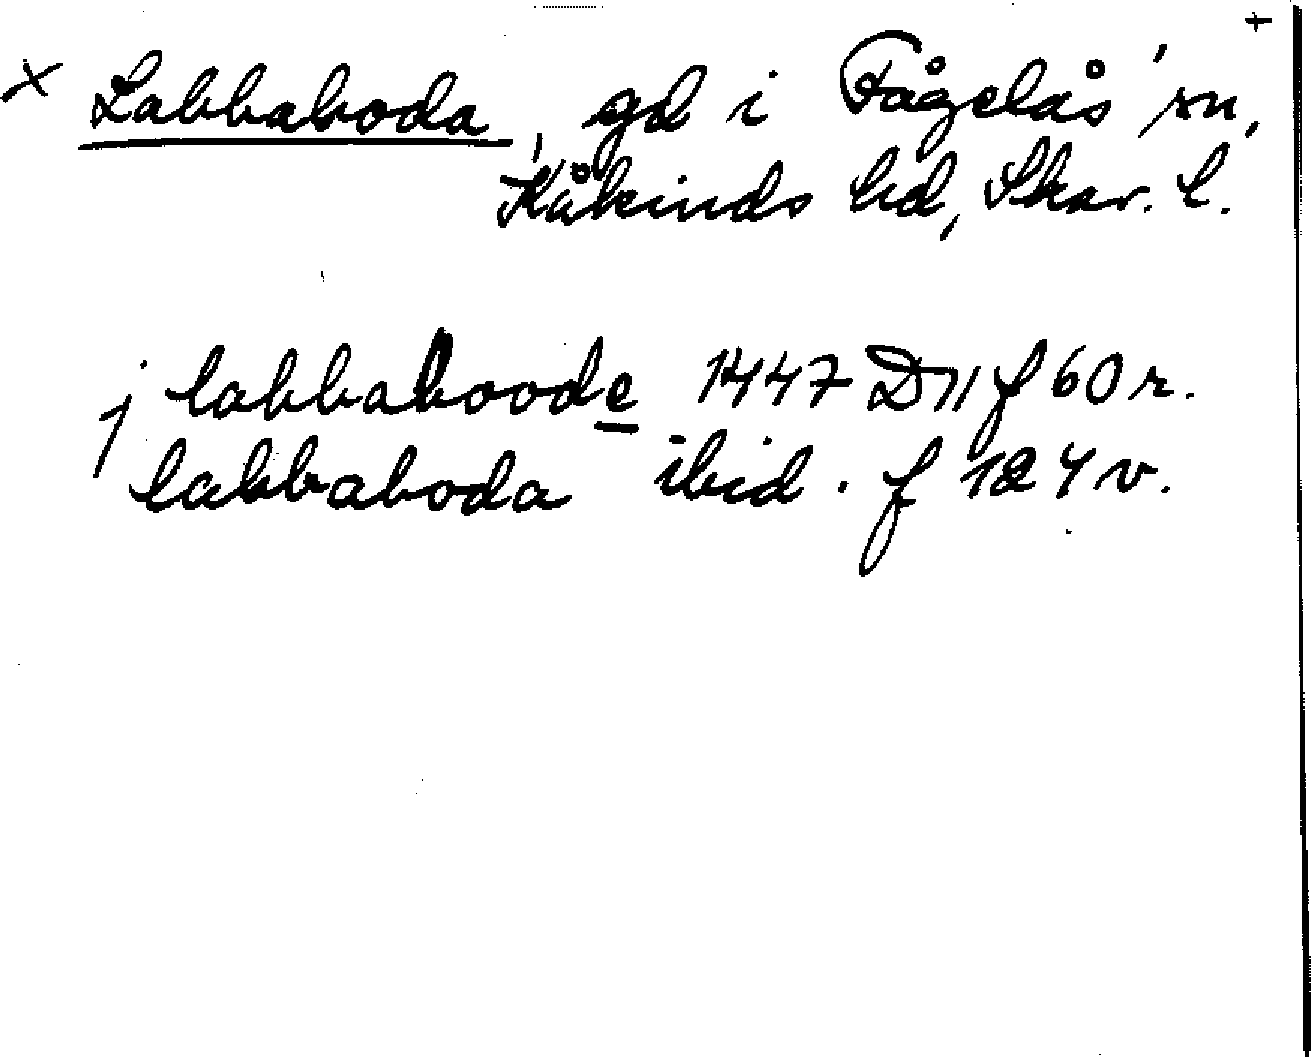 +
x Labbaboda, gd i Fågelås sn,
Kåkinds hd, Skar. l.
j labbaboode 1447 D11 f 60 r.
labbaboda ibid. f 124 v.